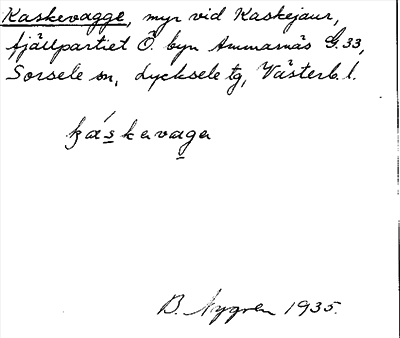 Kaskevagge, myr vid Kaskejaur,
fjällpartiet Ö. byn Ammarnäs G. 33,
Sorsele sn, Lycksele tg, Västerb. l.
káskevaga
B. Nygren 1935.